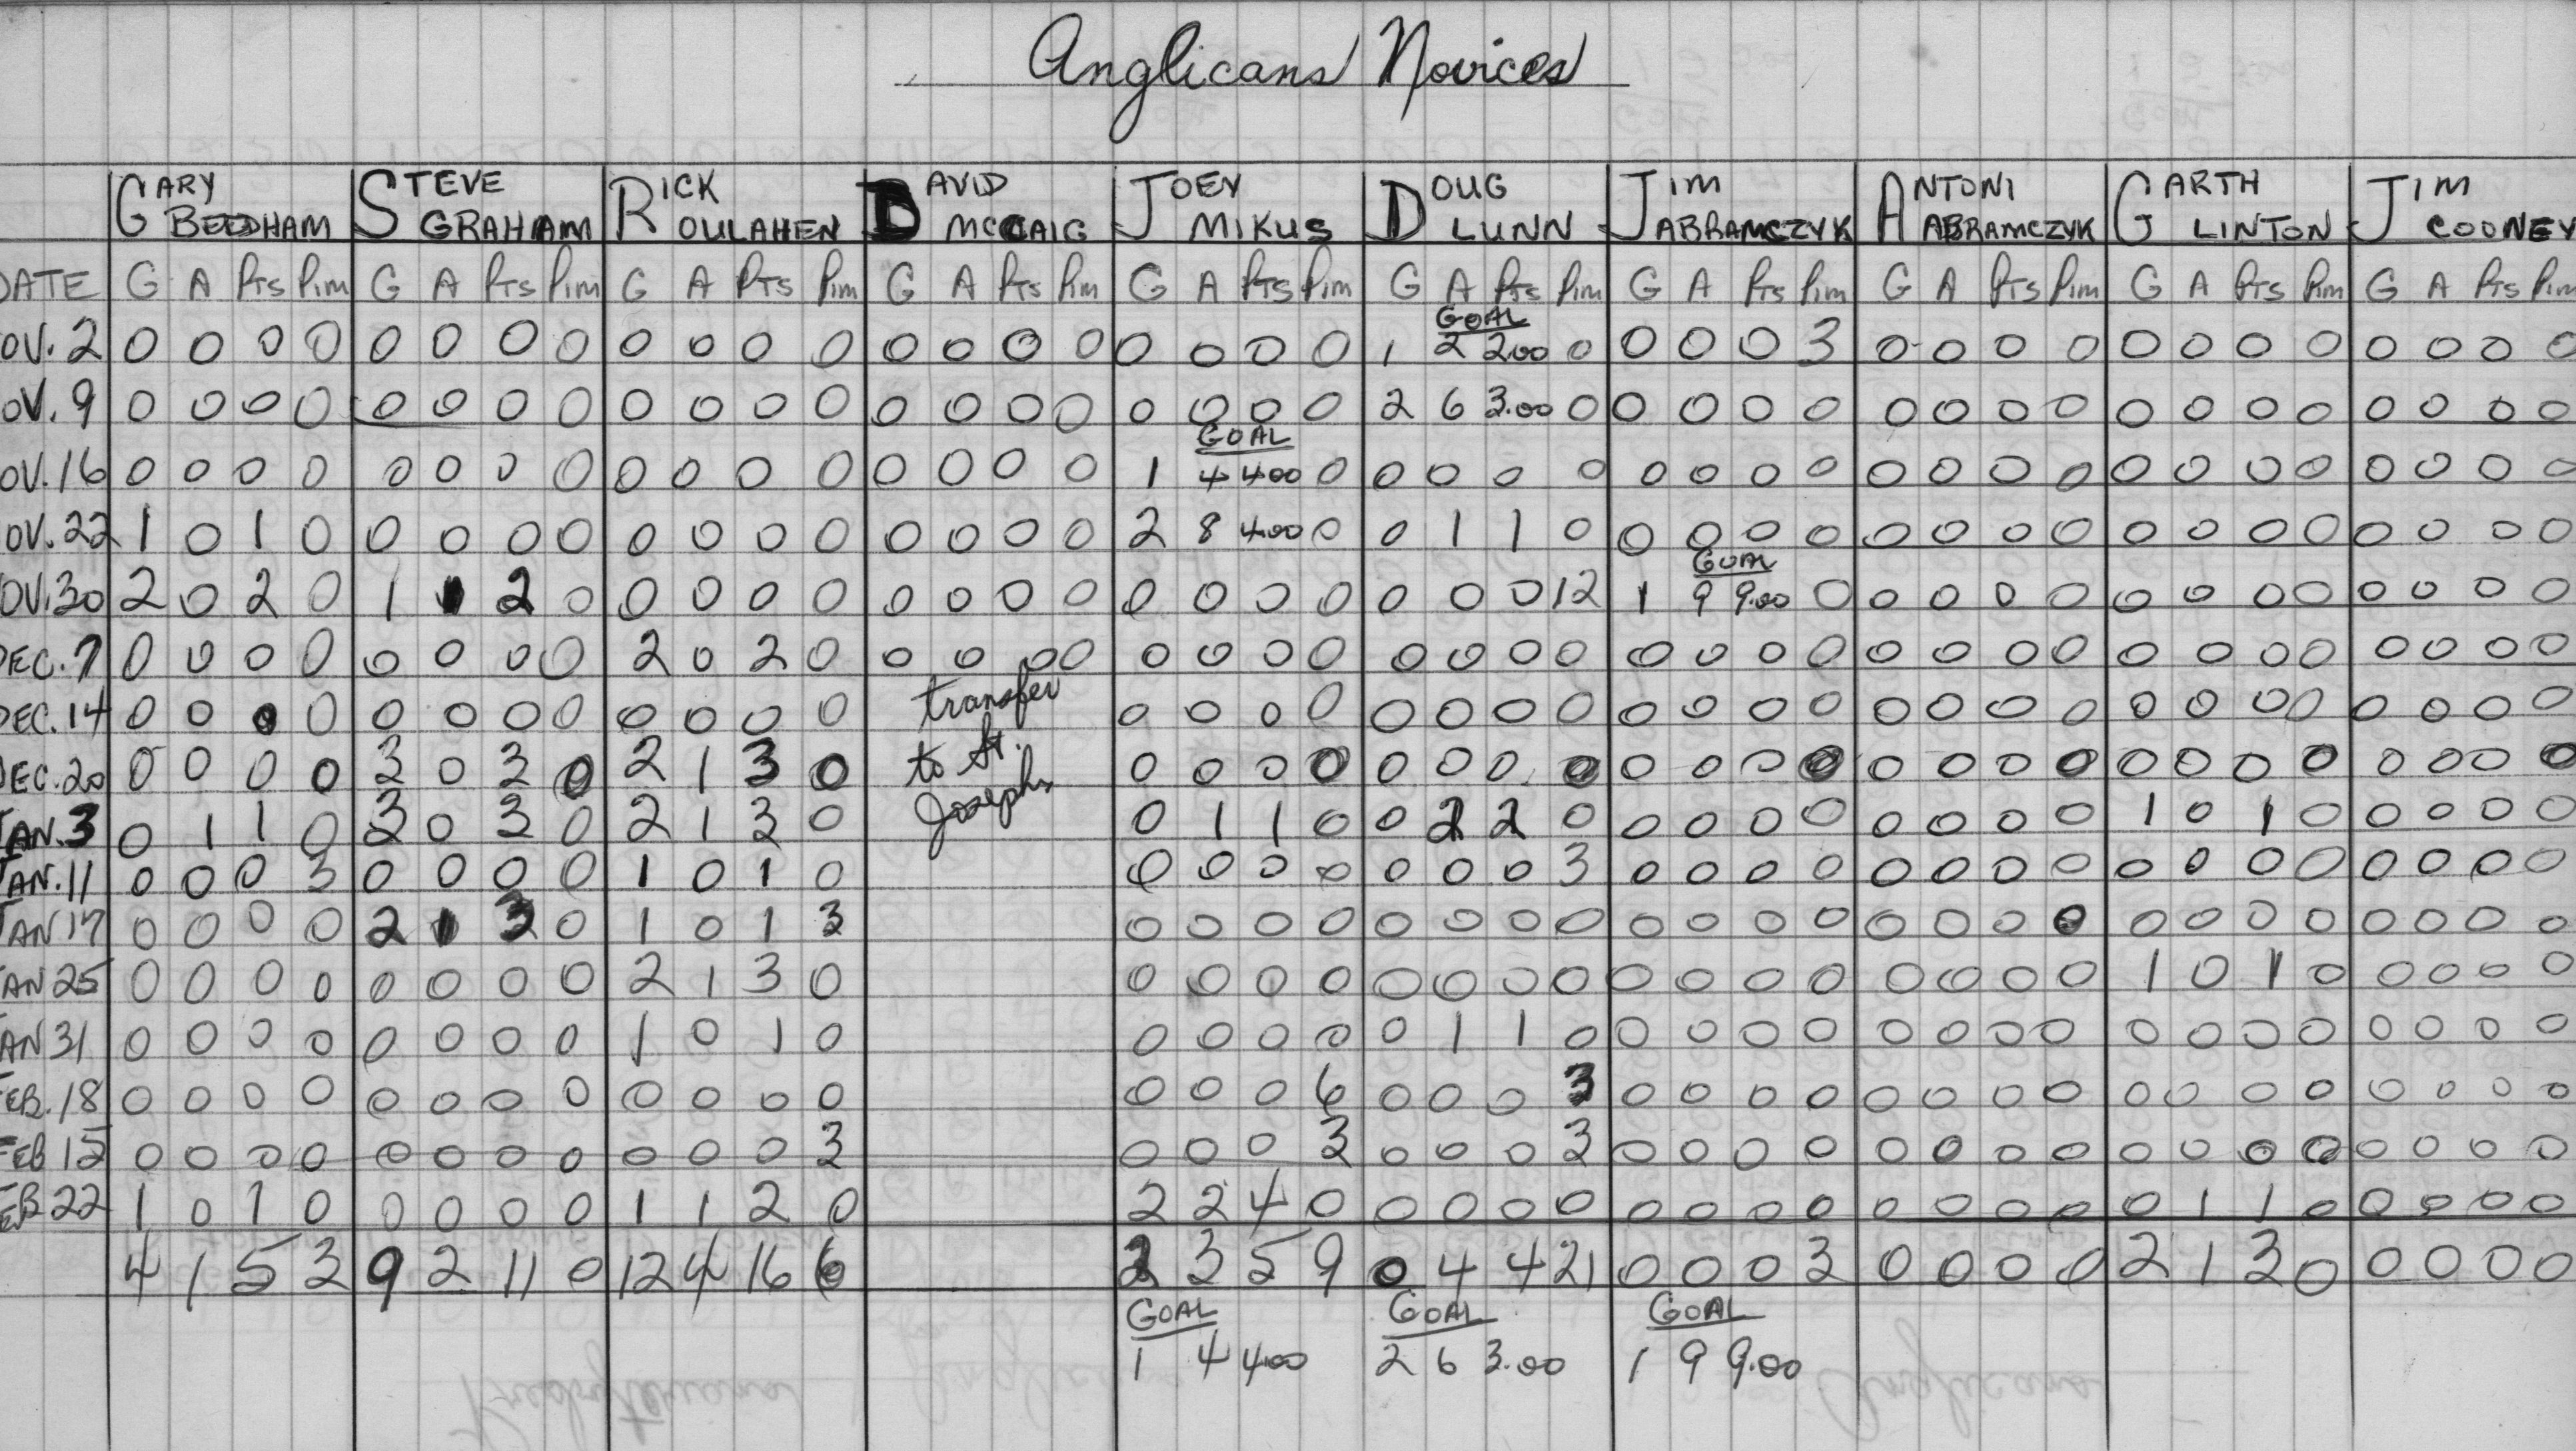 Anglicans Novices
GARY BEEDHAM STEVE GRAHAM RICK OULAHEN DAVID MCCAIG JOEY MIKUS DOUG LUNN JIM ABRAMCZYK ANTONI ABRAMCZYK GARTH LINTON JIM COONEY
DATE G A Pts Pim G A Pts Pim G A Pts Pim G A Pts Pim G A Pts Pim G A Pts Pim G A Pts Pim G A Pts Pim G A Pts Pim G A Pts Pim
GOAL
OV. 2 0 0 0 0 0 0 0 0 0 0 0 0 0 0 0 0 0 0 0 0 1 2 2.00 0 0 0 0 3 0 0 0 0 0 0 0 0 0 0 0 0
OV. 9 0 0 0 0 0 0 0 0 0 0 0 0 0 0 0 0 0 0 0 0 2 6 3.00 0 0 0 0 0 0 0 0 0 0 0 0 0 0 0 0 0
GOAL
OV. 16 0 0 0 0 0 0 0 0 0 0 0 0 0 0 0 0 1 4 4.00 0 0 0 0 0 0 0 0 0 0 0 0 0 0 0 0 0 0 0 0 0
OV. 22 1 0 1 0 0 0 0 0 0 0 0 0 0 0 0 0 2 8 4.00 0 0 1 1 0 0 0 0 0 0 0 0 0 0 0 0 0 0 0 0 0
GOAL
OV. 30 2 0 2 0 1 1 2 0 0 0 0 0 0 0 0 0 0 0 0 0 0 0 0 12 1 9 9.00 0 0 0 0 0 0 0 0 0 0 0 0 0
DEC. 7 0 0 0 0 0 0 0 0 2 0 2 0 0 0 0 0 0 0 0 0 0 0 0 0 0 0 0 0 0 0 0 0 0 0 0 0 0 0 0 0
DEC. 14 0 0 0 0 0 0 0 0 0 0 0 0 transfer 0 0 0 0 0 0 0 0 0 0 0 0 0 0 0 0 0 0 0 0 0 0 0 0
DEC. 20 0 0 0 0 3 0 3 0 2 1 3 0 to St. 0 0 0 0 0 0 0 0 0 0 0 0 0 0 0 0 0 0 0 0 0 0 0 0
JAN. 3 0 1 1 0 3 0 3 0 2 1 3 0 Josephs 0 1 1 0 0 2 2 0 0 0 0 0 0 0 0 0 1 0 1 0 0 0 0 0
JAN. 11 0 0 0 3 0 0 0 0 1 0 1 0 0 0 0 0 0 0 0 3 0 0 0 0 0 0 0 0 0 0 0 0 0 0 0 0
JAN 17 0 0 0 0 2 1 3 0 1 0 1 3 0 0 0 0 0 0 0 0 0 0 0 0 0 0 0 0 0 0 0 0 0 0 0 0
JAN 25 0 0 0 0 0 0 0 0 2 1 3 0 0 0 0 0 0 0 0 0 0 0 0 0 0 0 0 0 1 0 1 0 0 0 0 0
JAN 31 0 0 0 0 0 0 0 0 1 0 1 0 0 0 0 0 0 1 1 0 0 0 0 0 0 0 0 0 0 0 0 0 0 0 0 0
FEB. 18 0 0 0 0 0 0 0 0 0 0 0 0 0 0 0 6 0 0 0 3 0 0 0 0 0 0 0 0 0 0 0 0 0 0 0 0
FEB 15 0 0 0 0 0 0 0 0 0 0 0 3 0 0 0 3 0 0 0 3 0 0 0 0 0 0 0 0 0 0 0 0 0 0 0 0
FEB 22 1 0 1 0 0 0 0 0 1 1 2 0 2 2 4 0 0 0 0 0 0 0 0 0 0 0 0 0 0 1 1 0 0 0 0 0
4 1 5 3 9 2 11 0 12 4 16 6 2 3 5 9 0 4 4 21 0 0 0 3 0 0 0 0 2 1 3 0 0 0 0 0
GOAL GOAL GOAL
1 4 4.00 2 6 3.00 1 9 9.00